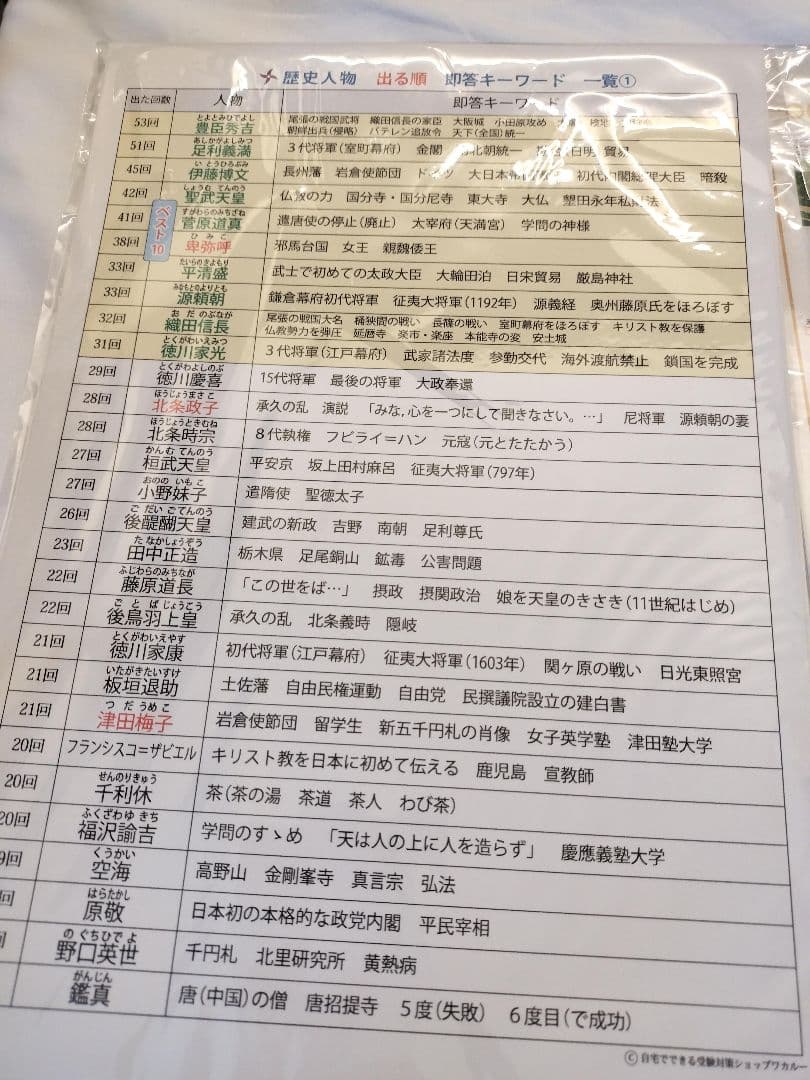 歴史人物 出る順 即答キーワード 一覧①
出た回数 人物 即答キーワード
ベスト10
53回 とよとみひでよし 豊臣秀吉 尾張の戦国武将 織田信長の家臣 大阪城 小田原攻め
朝鮮出兵(侵略) バテレン追放令 天下(全国)統一
51回 あしかがよしみつ 足利義満 3代将軍(室町幕府) 金閣 北朝統一 日明 貿易
45回 いとうひろぶみ 伊藤博文 長州藩 岩倉使節団 ドイツ 大日本帝 初代内閣総理大臣 暗殺
42回 しょうむ てんのう 聖武天皇 仏教の力 国分寺・国分尼寺 東大寺 大仏 墾田永年私 法
41回 すがわらのみちざね 菅原道真 遣唐使の停止(廃止) 太宰府(天満宮) 学問の神様
38回 ひみこ 卑弥呼 邪馬台国 女王 親魏倭王
33回 たいらのきよもり 平清盛 武士で初めての太政大臣 大輪田泊 日宋貿易 厳島神社
33回 みなもとのよりとも 源頼朝 鎌倉幕府初代将軍 征夷大将軍(1192年) 源義経 奥州藤原氏をほろぼす
32回 おだ のぶなが 織田信長 尾張の戦国大名 桶狭間の戦い 長篠の戦い 室町幕府をほろぼす キリスト教を保護
仏教勢力を弾圧 延暦寺 楽市・楽座 本能寺の変 安土城
31回 とくがわいえみつ 徳川家光 3代将軍(江戸幕府) 武家諸法度 参勤交代 海外渡航禁止 鎖国を完成
29回 とくがわよしのぶ 徳川慶喜 15代将軍 最後の将軍 大政奉還
28回 ほうじょうまさこ 北条政子 承久の乱 演説 「みな,心を一つにして聞きなさい。…」 尼将軍 源頼朝の妻
28回 ほうじょうときむね 北条時宗 8代執権 フビライ=ハン 元寇(元とたたかう)
27回 かんむ てんのう 桓武天皇 平安京 坂上田村麻呂 征夷大将軍(797年)
27回 おのの いもこ 小野妹子 遣隋使 聖徳太子
26回 ごだいごてんのう 後醍醐天皇 建武の新政 吉野 南朝 足利尊氏
23回 たなかしょうぞう 田中正造 栃木県 足尾銅山 鉱毒 公害問題
22回 ふじわらのみちなが 藤原道長 「この世をば…」 摂政 摂関政治 娘を天皇のきさき(11世紀はじめ)
22回 ごとばじょうこう 後鳥羽上皇 承久の乱 北条義時 隠岐
21回 とくがわいえやす 徳川家康 初代将軍(江戸幕府) 征夷大将軍(1603年) 関ヶ原の戦い 日光東照宮
21回 いたがきたいすけ 板垣退助 土佐藩 自由民権運動 自由党 民撰議院設立の建白書
21回 つだうめこ 津田梅子 岩倉使節団 留学生 新五千円札の肖像 女子英学塾 津田塾大学
20回 フランシスコ=ザビエル キリスト教を日本に初めて伝える 鹿児島 宣教師
20回 せんのりきゅう 千利休 茶(茶の湯 茶道 茶人 わび茶)
20回 ふくざわゆきち 福沢諭吉 学問のすゝめ 「天は人の上に人を造らず」 慶應義塾大学
9回 くうかい 空海 高野山 金剛峯寺 真言宗 弘法
回 はらたかし 原敬 日本初の本格的な政党内閣 平民宰相
回 のぐちひでよ 野口英世 千円札 北里研究所 黄熱病
がんじん 鑑真 唐(中国)の僧 唐招提寺 5度(失敗) 6度目(で成功)
©自宅でできる受験対策ショップワカルー